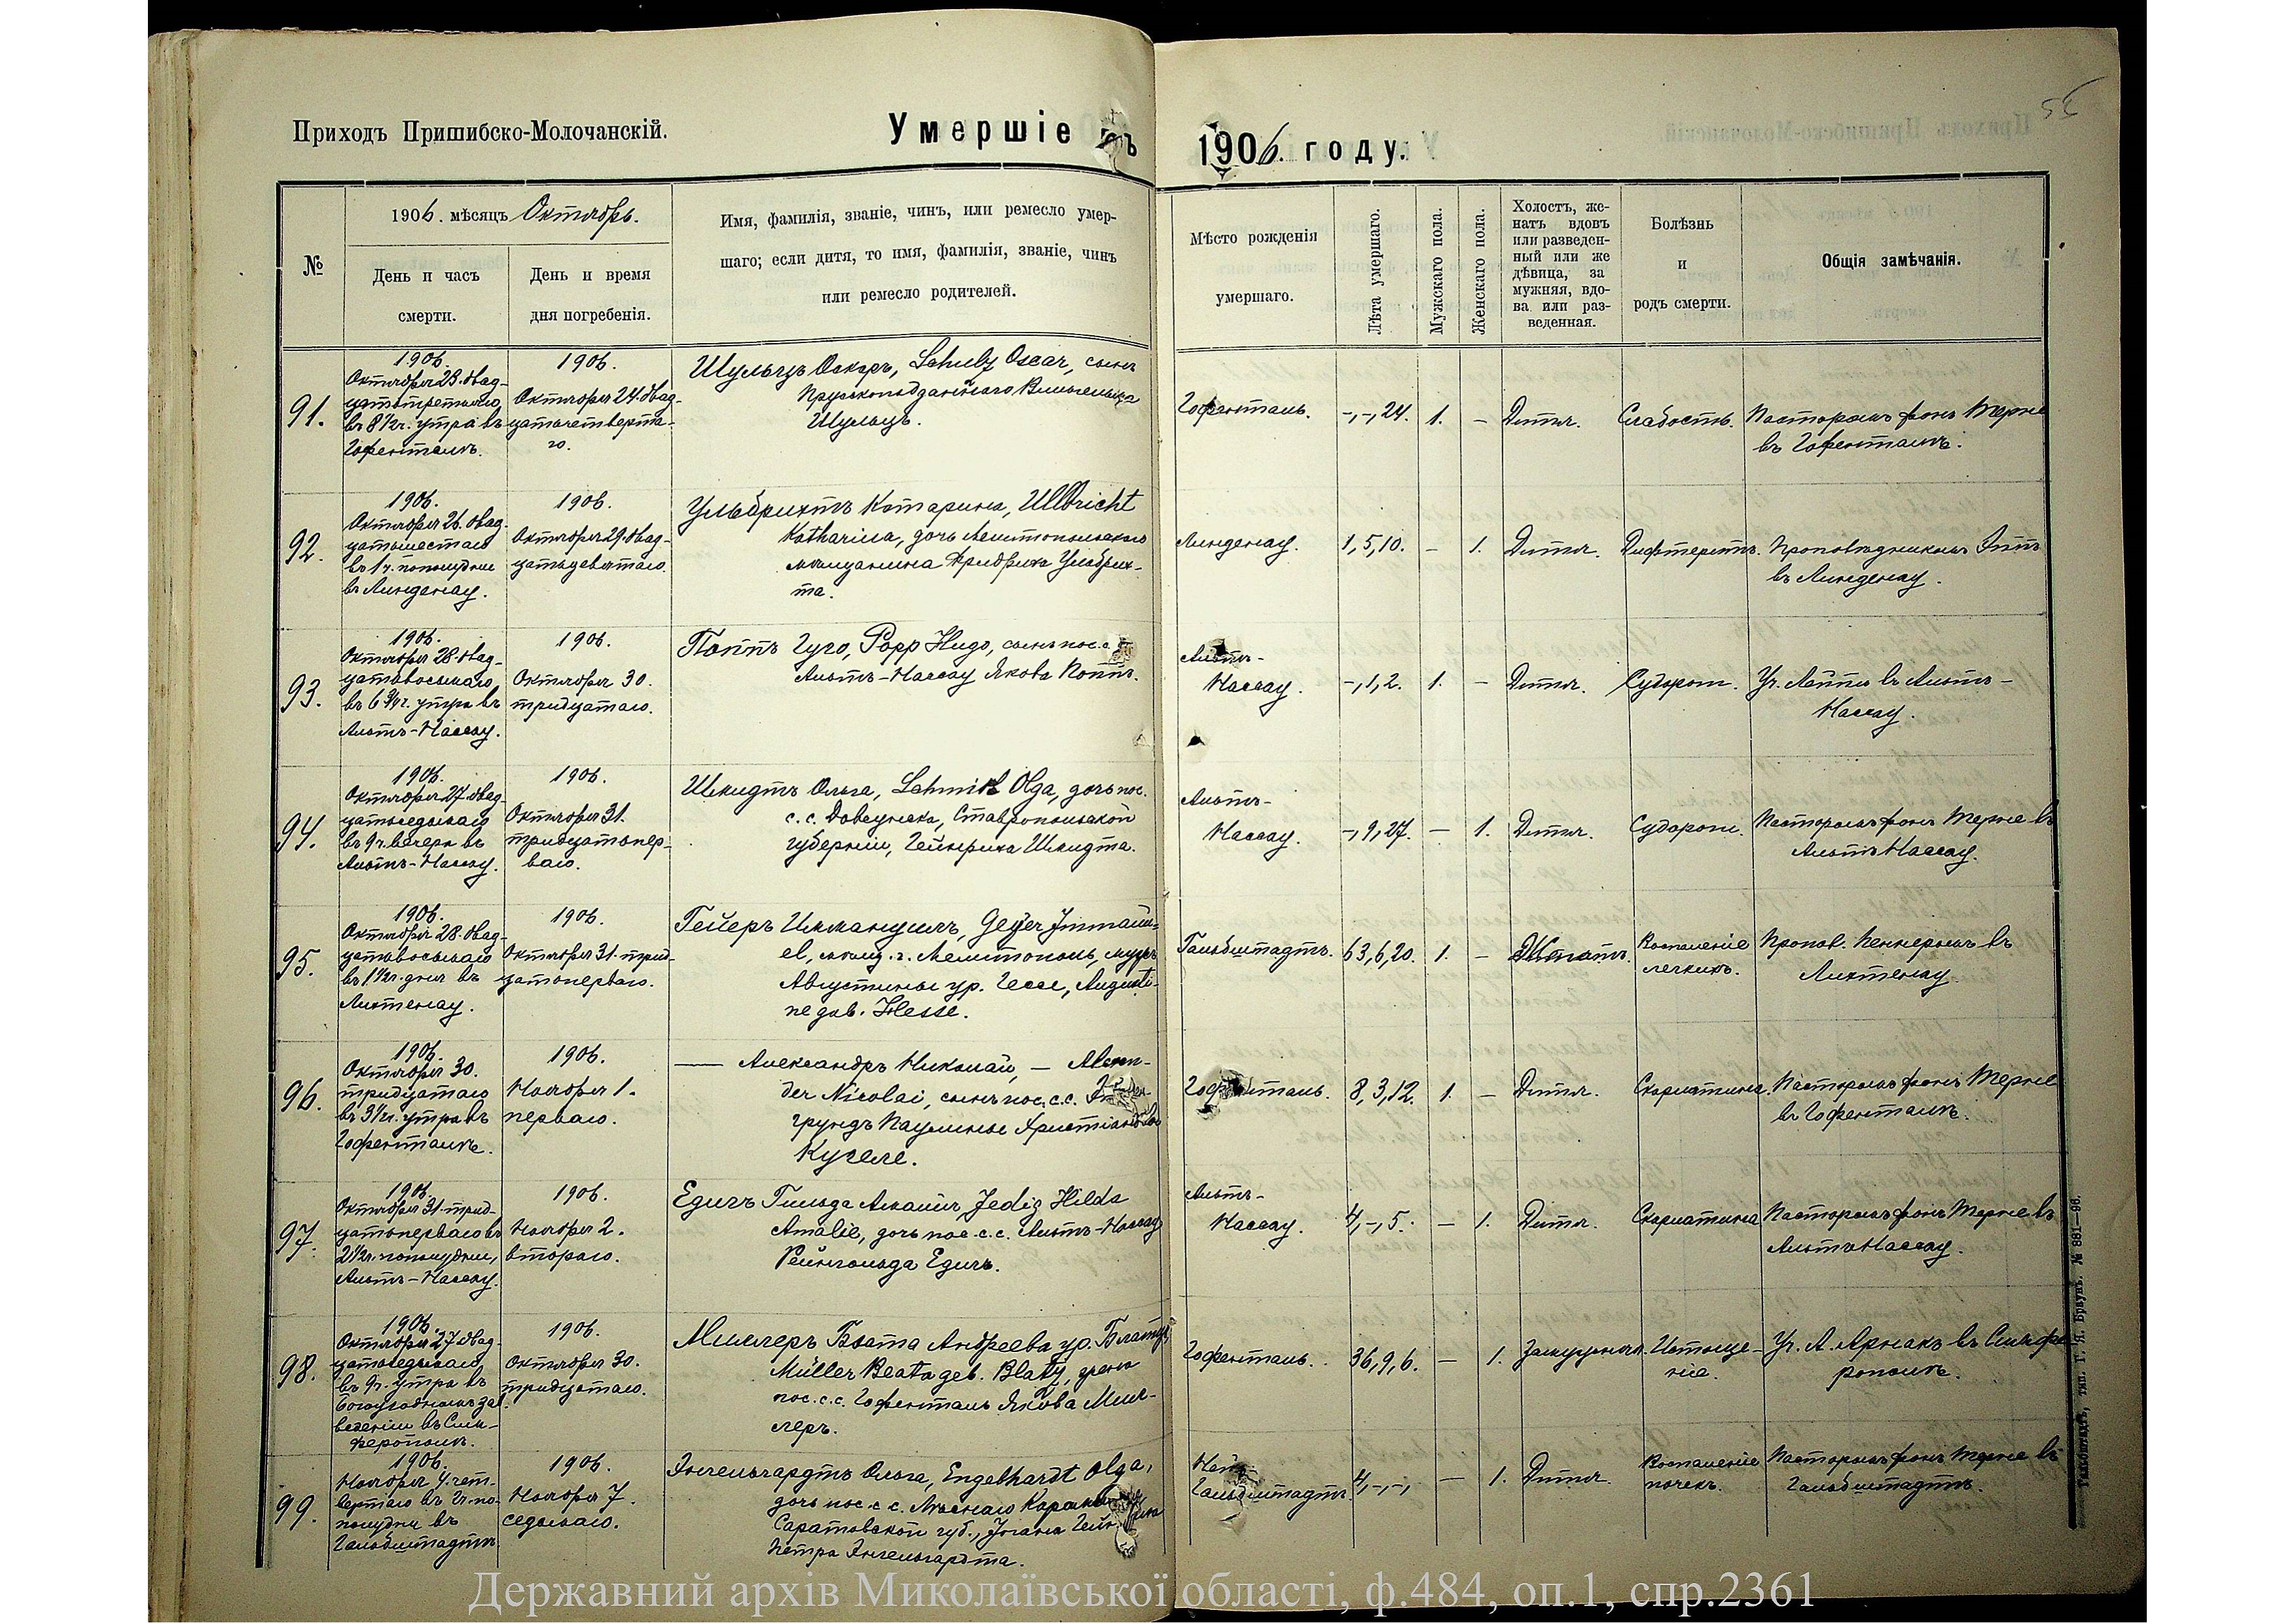 Приходъ Пришибско-Молочанскій.
Умершіе въ
1906. году.
№
1906. мѣсяцъ Октябрь.
День и часъ
смерти.
День и время
дня погребенія.
Имя, фамилія, званіе, чинъ, или ремесло умер-
шаго; если дитя, то имя, фамилія, званіе, чинъ
или ремесло родителей.
Мѣсто рожденія
умершаго.
Лѣта умершаго.
Мужскаго пола.
Женскаго пола.
Холостъ, же-
натъ вдовъ
или разведен-
ный или же
дѣвица, за
мужняя, вдо-
ва или раз-
веденная.
Болѣзнь
и
родъ смерти.
Общія замѣчанія.
91.
1906.
Октября 23. двад-
цатьтретьяго
въ 8 1/2 ч. утра въ
Гофенталѣ.
1906.
Октября 24. двад-
цатьчетверта-
го.
Шульцъ Оскаръ, Schulz Oscar, сынъ
Прусскоподданнаго Вильгельма
Шульцъ.
Гофенталь.
-,-,24.
1.
–
Дитя.
Слабость.
Пасторомъ фонъ Терне
въ Гофенталѣ.
92.
1906.
Октября 26. двад-
цатьшестаго
въ 1 ч. пополудни
въ Линденау.
1906.
Октября 29. двад-
цатьдевятаго.
Ульбрихтъ Катарина, Ullbricht
Katharina, дочь Мелитопольскаго
мѣщанина Фридриха Ульбрих-
та.
Линденау.
1,5,10.
–
1.
Дитя.
Дифтеритъ.
Проповѣдникомъ Эппъ
въ Линденау.
93.
1906.
Октября 28. двад-
цатьвосьмаго,
въ 6 3/4 ч. утра въ
Альтъ-Нассау.
1906.
Октября 30.
тридцатаго.
Поппъ Гуго, Popp Hugo, сынъ пос. с.
Альтъ-Нассау Якова Поппъ.
Альтъ-
Нассау.
-,1,2.
1.
–
Дитя.
Судороги.
Уч. Леппи въ Альтъ-
Нассау.
94.
1906.
Октября 27. двад-
цатьседьмаго
въ 9 ч. вечера въ
Альтъ-Нассау.
1906.
Октября 31.
тридцатьпер-
ваго.
Шмидтъ Ольга, Schmidt Olga, дочь пос.
с. с. Довсунска, Ставропольской
губерніи, Гейнриха Шмидта.
Альтъ-
Нассау.
-,9,27.
–
1.
Дитя.
Судороги.
Пасторомъ фонъ Терне въ
Альтъ Нассау.
95.
1906.
Октября 28. двад-
цатьвосьмаго
въ 1 1/2 ч. дня въ
Лихтенау.
1906.
Октября 31. трид-
цатьперваго.
Гейеръ Иммануилъ, Geyer Immanu-
el, мѣщ. г. Мелитополь, мужъ
Августины ур. Гессе, Augusti-
ne geb. Hesse.
Гальбштадтъ.
63,6,20.
1.
–
Женатъ.
Воспаленіе
легкихъ.
Пропов. Геннеромъ въ
Лихтенау.
96.
1906.
Октября 30.
тридцатаго
въ 3 1/2 ч. утра въ
Гофенталѣ.
1906.
Ноября 1.
перваго.
— Александръ Николай, — Alexan-
der Nicolai, сынъ пос. с.с.
грундъ Паулины Христіановой
Кугеле.
Гофенталь.
8,3,12.
1.
–
Дитя.
Скарлатина.
Пасторомъ фонъ Терне
въ Гофенталѣ.
97.
1906.
Октября 31. трид-
цатьперваго въ
2 1/2 ч. пополудни,
Альтъ-Нассау.
1906.
Ноября 2.
втораго.
Едигъ Гильда Амалія, Jedig Hilda
Amalie, дочь пос. с.с. Альтъ-Нассау
Рейнгольда Едигъ.
Альтъ-
Нассау.
4,-,5.
–
1.
Дитя.
Скарлатина
Пасторомъ фонъ Терне въ
Альтъ Нассау.
98.
1906.
Октября 27. двад-
цатьседьмаго,
въ 9 ч. утра въ
Богоугодномъ за-
веденіи въ Сим-
ферополѣ.
1906.
Октября 30.
тридцатаго.
Миллеръ Беата Андреева ур. Блатцъ
Müller Beata geb. Blatz, жена
пос. с.с. Гофенталь Якова Мил-
леръ.
Гофенталь.
36,9,6.
–
1.
Замужняя.
Истоще-
ніе.
Уч. А. Арнакъ въ Симфе-
рополѣ.
99.
1906.
Ноября 4. чет-
вертаго въ 2 ч. по-
полудни въ
Гальбштадтѣ.
1906.
Ноября 7.
седьмаго.
Энгельгардтъ Ольга, Engelhardt Olga,
дочь пос. с с. Лѣснаго Карамыша
Саратовской губ., Іогана Гейн.
Петра Энгельгардта.
Ней-
Гальбштадтъ.
4,-,-,
–
1.
Дитя.
Воспаленіе
почекъ.
Пасторомъ фонъ Терне въ
Гальбштадтѣ.
Гальбштадтъ, тип. Г. Я. Браунъ. № 881—96.
Державний архів Миколаївської області, ф.484, оп.1, спр.2361